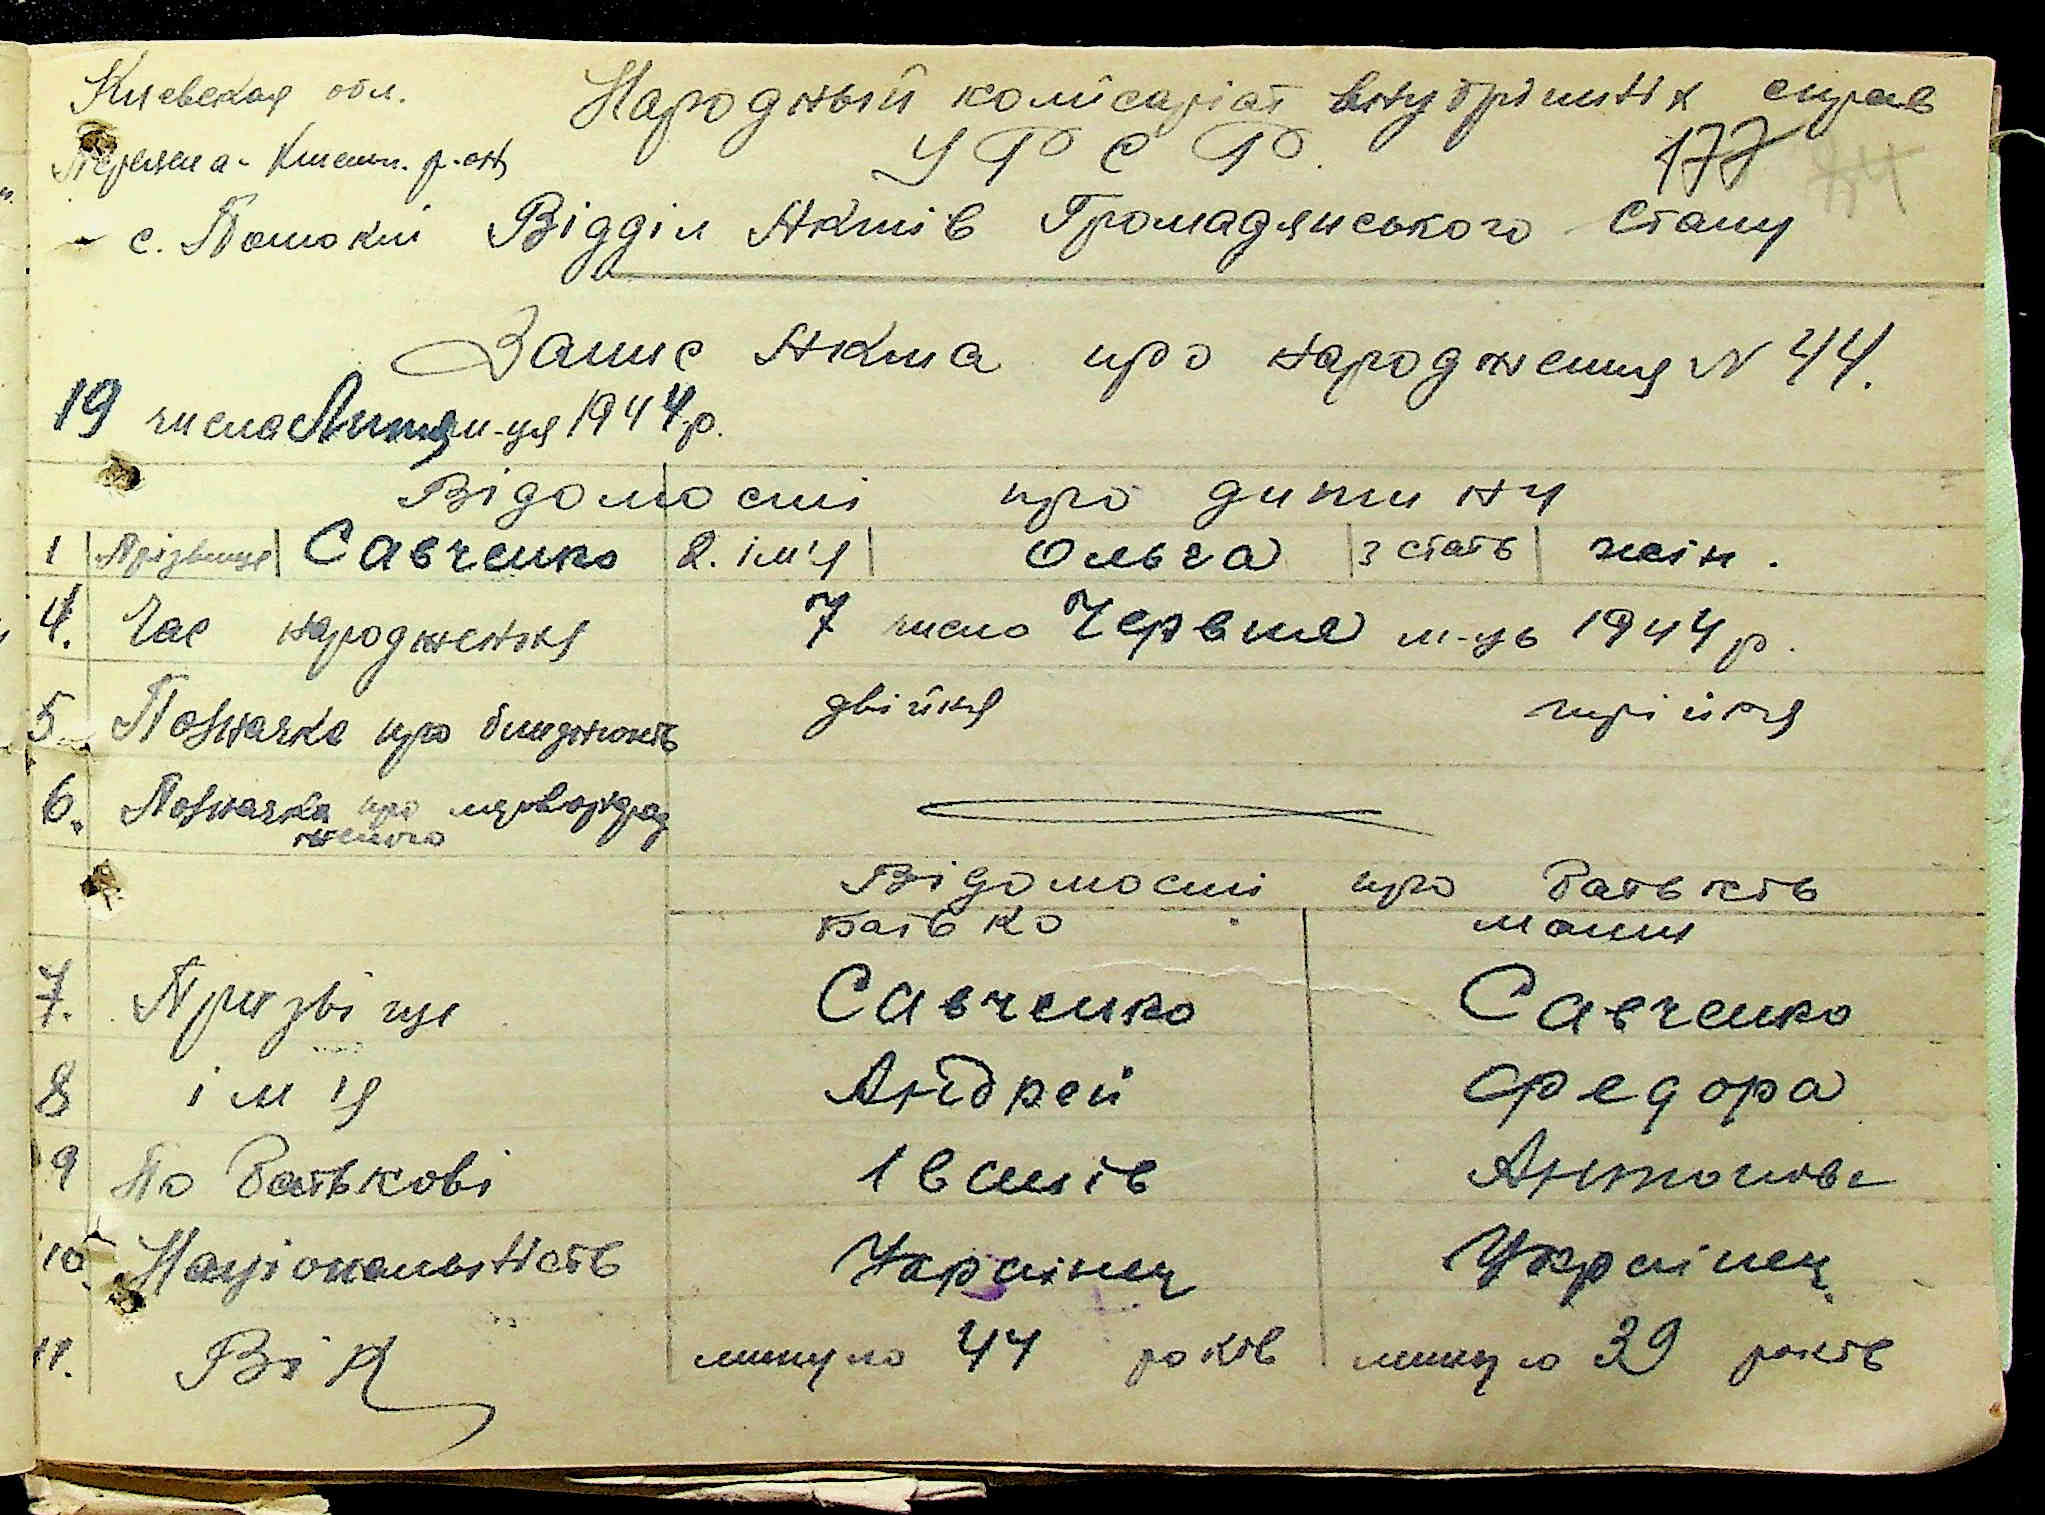 Киевская обл. Народный комісаріат внутрішніх справ
У Р С Р. 177
с. Потокі Відділ Актів Громадянського Стану
Запис Акта про народження N 44.
19 числа Липня м-ця 1944 р.
Відомості про дитину
1 Прізвище Савченко 2. ім'я Ольга 3 стать жін.
4. Час народження 7 число Червня м-ць 1944 р.
5 Позначка про близнюків двійня трійня
6. Позначка про мертворад
женого
Відомості про батьків
батько мати
7. Призвіще Савченко Савченко
8 ім'я Андрей Федора
9 По батькові Іванів Антонівн
10. Національність Украінец Украінец
11. Вік минуло 44 років минуло 39 років